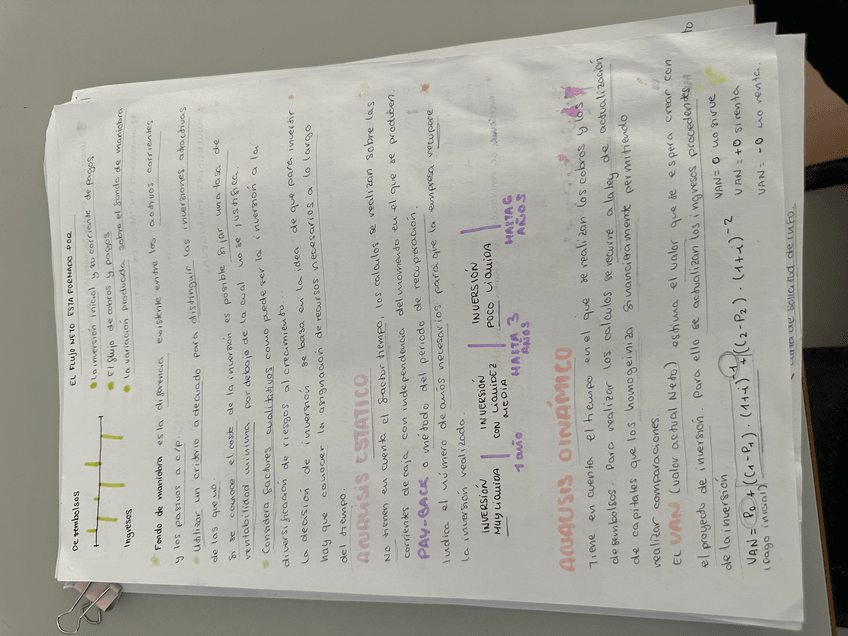 Desembolsos
Ingresos
EL FLUJO NETO ESTA FORMADO POR
La inversión inicial y su corriente de pagos
El flujo de cobros y pagos
La variación producida sobre el fondo de maniobra
Fondo de maniobra es la diferencia existente entre los activos corrientes
y los pasivos a c/p.
Utilizar un criterio adecuado para distinguir las inversiones atractivas
de las que no
Si se conoce el coste de la inversión es posible fijar una tasa de
rentabilidad mínima por debajo de la cual no se justifica.
Considera factores cualitativos como puede ser la inversión a la
diversificación de riesgos al crecimiento...
La decisión de inversión se basa en la idea de que para invertir
hay que conocer la asignación de recursos necesarios a lo largo
del tiempo.
ANALISIS ESTATICO
No tienen en cuenta el factor tiempo, los calculos se realizan sobre las
corrientes de caja con independencia del momento en el que se producen.
PAY-BACK o método del periodo de recuperación.
Indica el número de años necesarios para que la empresa recupere
la inversión realizada.
INVERSIÓN
MUY LIQUIDA
INVERSIÓN
CON LIQUIDEZ
MEDIA
INVERSIÓN
POCO LIQUIDA
1 AÑO
HASTA 3
AÑOS
HASTA 6
AÑOS
ANALISIS DINÁMICO
Tiene en cuenta el tiempo en el que se realizan los cobros y los
desembolsos. Para realizar los calculos se recurre a la ley de actualización
de capitales que los homogeiniza financieramente permitiendo
realizar comparaciones.
EL VAN (valor actual Neto) estima el valor que se espera crear con
el proyecto de inversión. Para ello se actualizan los ingresos procedentes
de la inversión
VAN = P0 + (C1-P1) · (1+i)-1 + (C2-P2) · (1+i)-2
(pago inicial)
VAN = 0 no sirve
VAN = +0 si renta
VAN = -0 no renta.